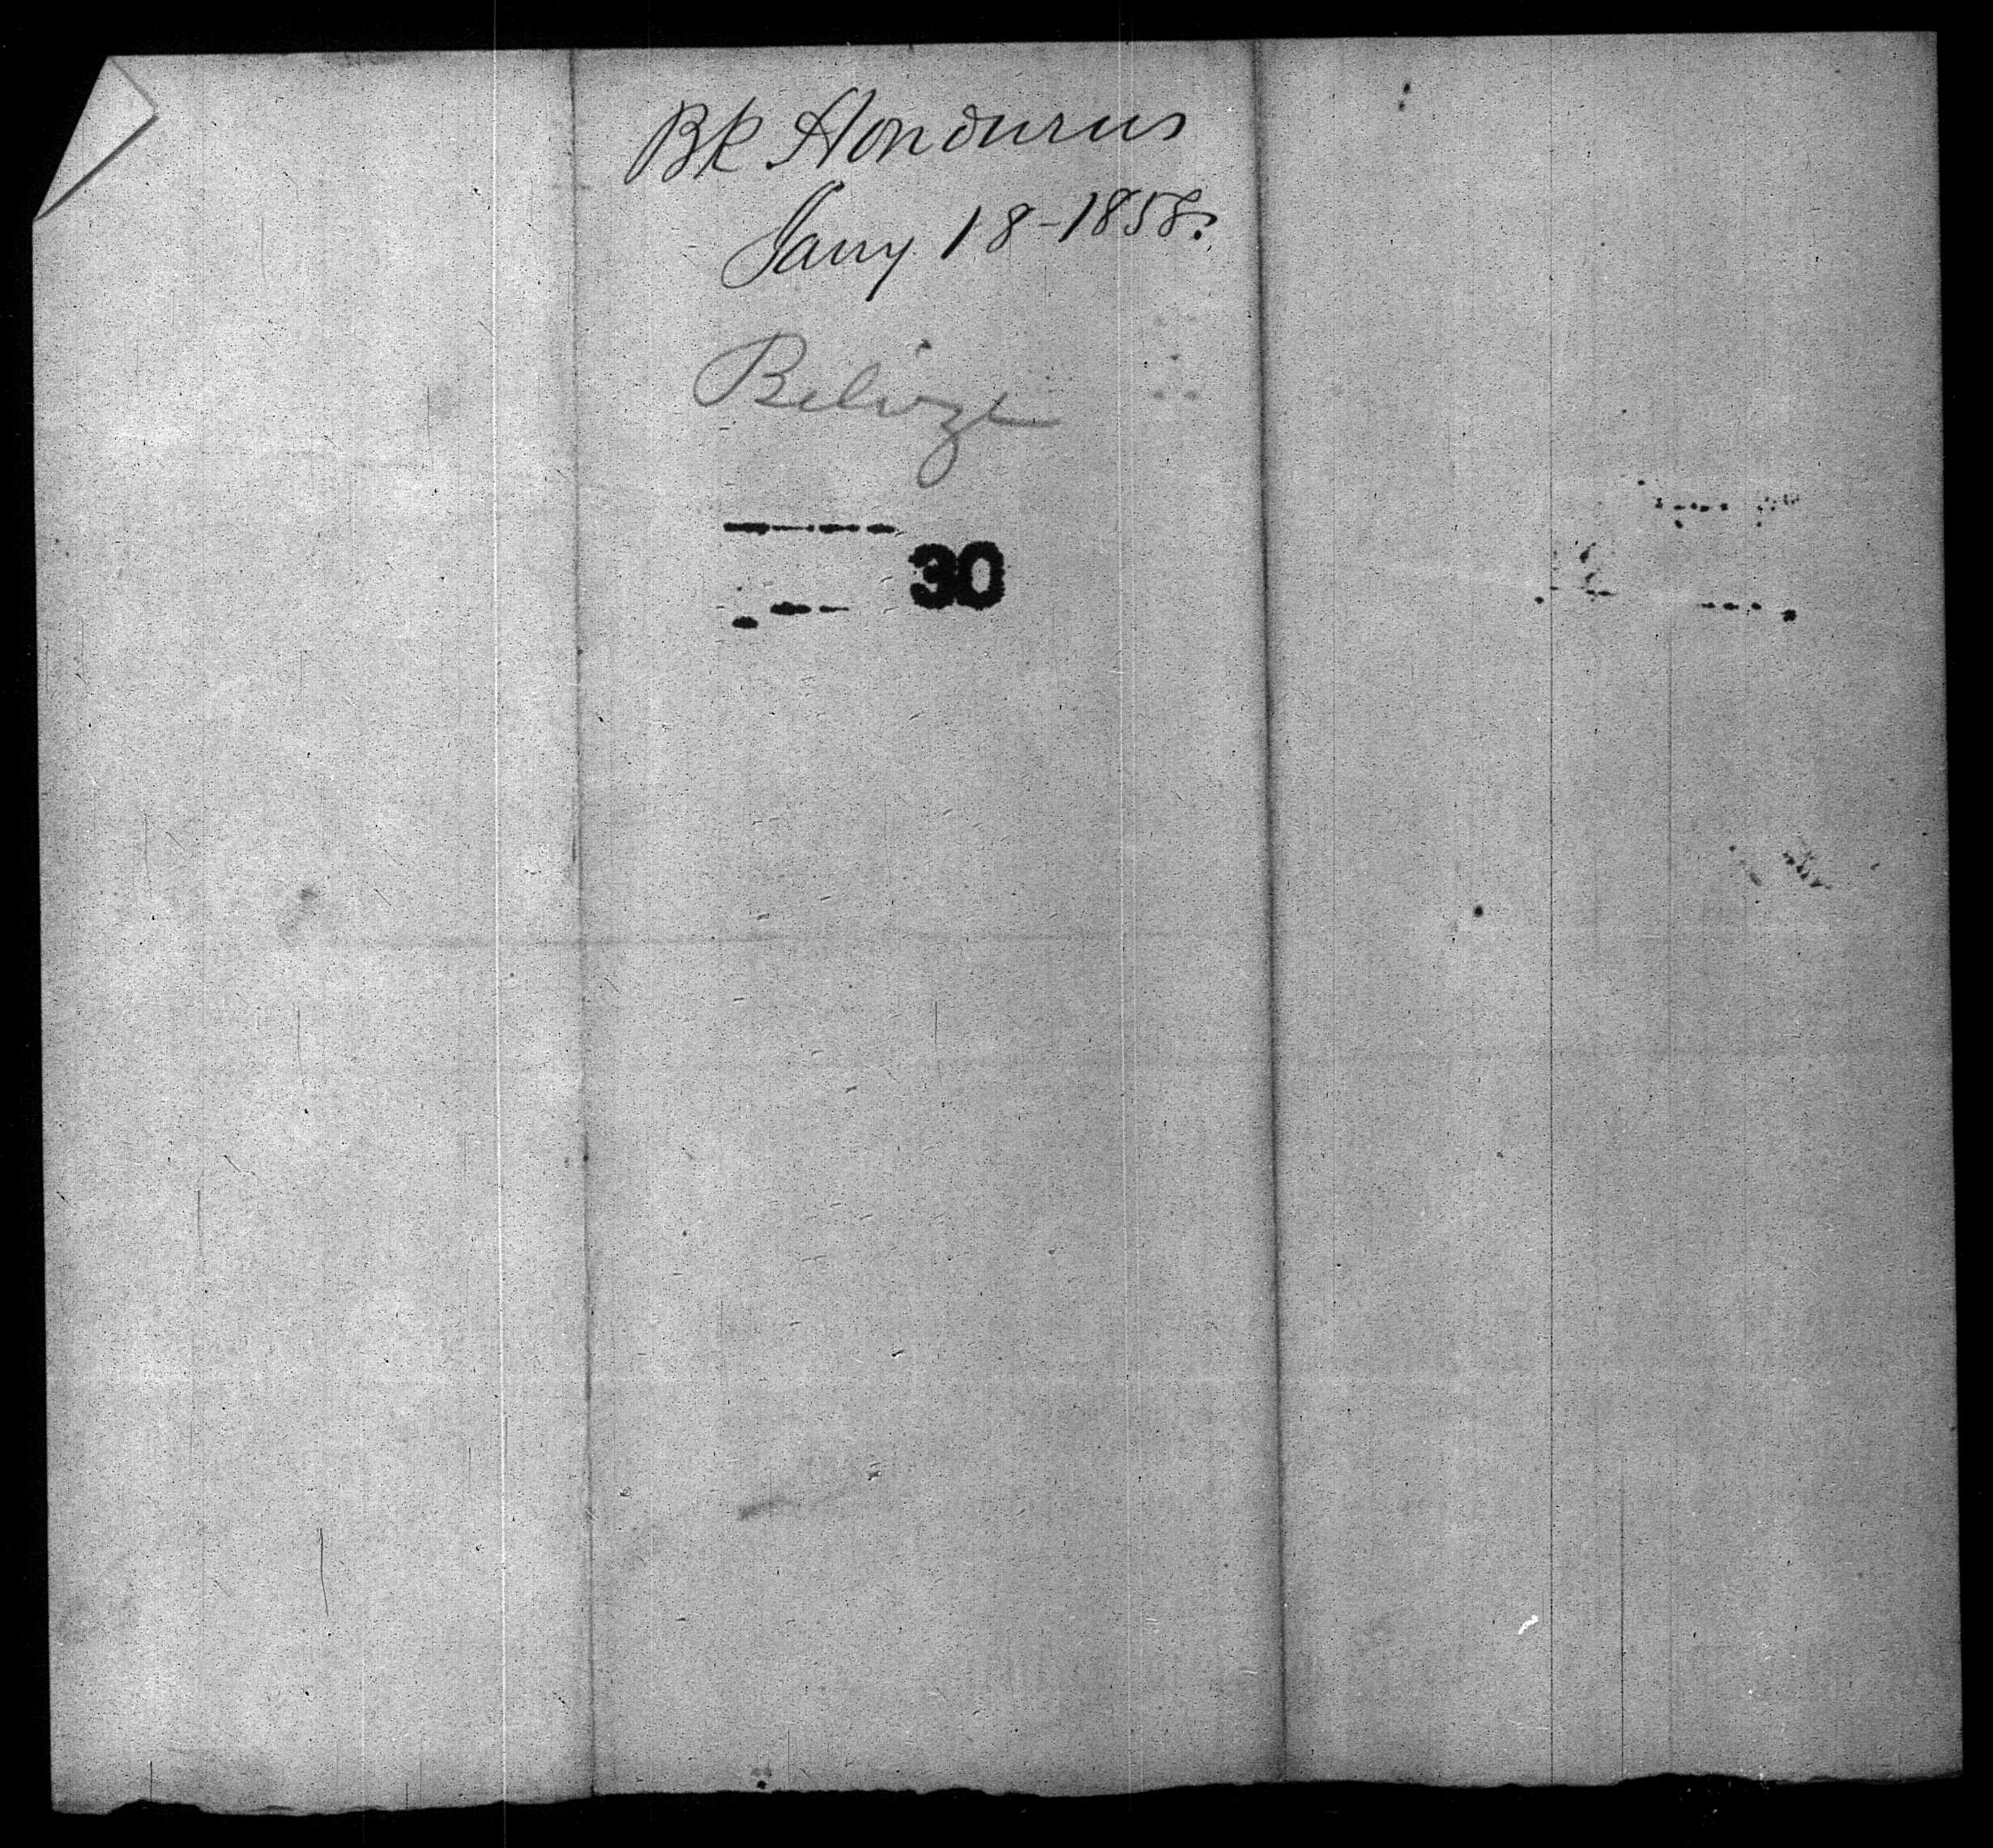 BK Hondurus
Jany 18-1858.
Belize
30